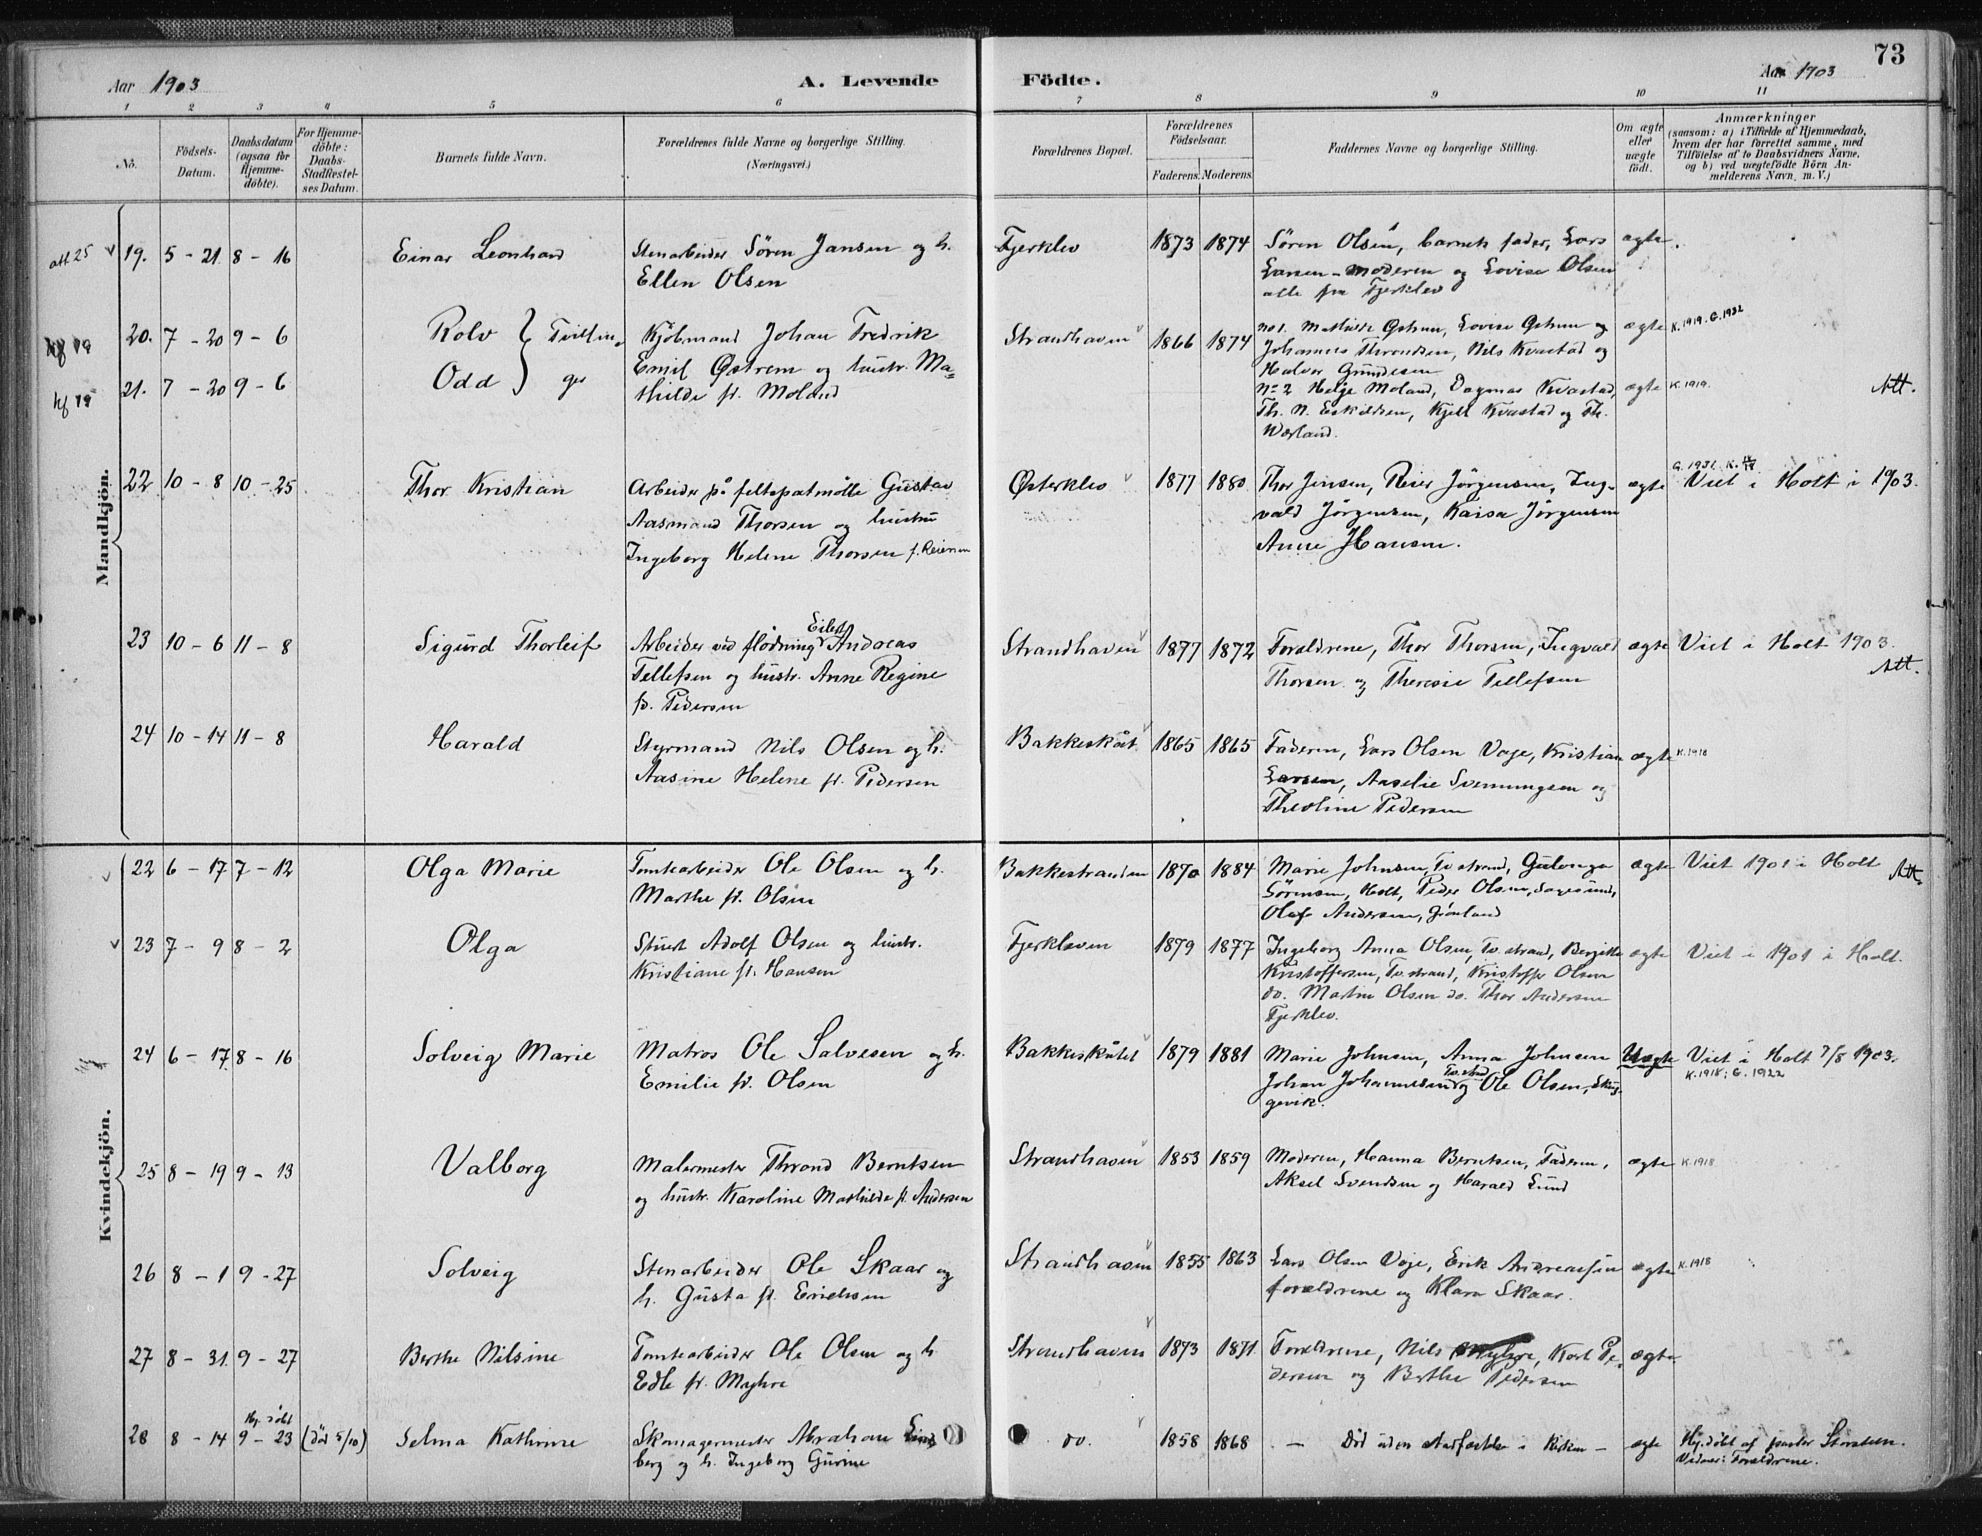 73
Aar 1903 A. Levende Födte. Aar 1903
1 2 3 4 5 6 7 8 9 10 11
No. Födsels-Datum. Daabsdatum (ogsaa for Hjemme-döbte). For Hjemme-döbte: Daabs-Stadfæstel-ses Datum. Barnets fulde Navn. Forældrenes fulde Navne og borgerlige Stilling. (Næringsvei.) Forældrenes Bopæl. Forældrenes Födselsaar. Faderens. Moderens. Faddernes Navne og borgerlige Stilling. Om ægte eller uægte födt. Anmærkninger (saasom: a) i Tilfælde af Hjemmedaab, hvem der har forrettet samme, med Tilföielse af to Daabsvidners Navne, og b) ved uægtefödte Börn An-melderens Navn, m. V.)
Mandkjön.
att. 25 19. 5 - 21 8 - 16 Einar Leonhard Stenarbeider Sören Jansen og h. Fjerklev 1873 1874 Sören Olsen, barnets fader, Lars ægte.
Ellen Olsen Larsen - Moderen og Lovise Olsen
alle fra Fjerklev
20. 7 - 20 9 - 6 Rolv } Tvillin- Kjöbmand Johan Fredrik Strandhaven 1866 1874 no 1. Mathilde Østrem, Lovise Østrem og ægte K. 1919. G. 1932
Emil Østrem og hustr. Ma= Johannes Throndsen, Nils Kvastad og
Halvor Grundesen
21. 7 - 20 9 - 6 Odd } ger thilde f. Moland No 2 Helge Moland, Dagmar Kvastad, ægte K. 1919. Att.
Th. N. Eskildsen, Kjell Kvastad og Th.
Værland.
22 10 - 8 10 - 25 Thor Kristian Arbeider på feltspatmölle Gustav Østerklev 1877 1880 Thor Jensen, Reier Jörgensen, Ing- ægte G. 1931 Viet i Holt i 1903.
Aasmund Thorsen og hustru vald Jörgensen, Kaisa Jörgensen
Ingeborg Helene Thorsen f. Reiersen Anne Hansen.
23 10 - 6 11 - 8 Sigurd Thorleif Arbeider ved flödning Eilert Andreas Strandhaven 1877 1872 Forældrene, Thor Thorsen, Ingvald ægte Viet i Holt 1903.
Tellefsen og hustr. Anne Regine Thorsen og Theresie Tellefsen Att.
f. Pedersen
24 10 - 14 11 - 8 Harald Styrmand Nils Olsen og h. Bakkeskåt 1865 1865 Faderen, Lars Olsen Voje, Kristian ægte K. 1918
Aasine Helene f. Pedersen Larsen, Aaselie Svenningsen og
Theoline Pedersen
Kvindekjön.
22 6 - 17 7 - 12 Olga Marie Tomtearbeider Ole Olsen og h. Bakkestranden 1870 1884 Marie Johnsen, Tv.strand, Gulonga ægte Viet 1901 i Holt Att.
Marthe f. Olsen Sörensen, Holt, Peder Olsen, Sagesund,
Olaf Andersen, Grönland
23 7 - 9 8 - 2 Olga Stuert Adolf Olsen og hustr. Fjerkleven 1879 1877 Ingeborg Anna Olsen, Tv.strand, Bergitte ægte Viet i 1901 i Holt.
Kristiane f. Hansen Kristoffersen, Tv.strand, Kristoffer Olsen
do. Martin Olsen do. Thor Andersen
Fjerklev.
24 6 - 17 8 - 16 Solveig Marie Matros Ole Salvesen og h. Bakkeskåtet 1879 1881 Marie Johnsen, Anna Johnsen Uægte Viet i Holt 7/8 1903.
Emilie f. Olsen Johan Johannesen Tv.strand og Ole Olsen, Skug- K. 1918; G. 1922
gevik.
25 8 - 19 9 - 13 Valborg Malermester Thrond Berntsen Strandhaven 1853 1859 Moderen, Hanna Berntsen, Faderen, ægte K. 1918
og hustr. Karoline Mathilde f. Andersen Aksel Svendsen og Harald Lund
26 8 - 1 9 - 27 Solveig Stenarbeider Ole Skaar og Strandhaven 1855 1863 Lars Olsen Voje, Erik Andreassen ægte K. 1918
h. Gusta f. Erichsen forældrene og Klara Skaar.
27 8 - 31. 9 - 27 Berthe Nilsine Tomtearbeider Ole Olsen og h. Strandhaven 1873 1871 Forældrene, Nils Myhre, Karl Pe- ægte.
Edle f. Myhre dersen og Berthe Pedersen
28 8 - 14 Hj. döbt 9 - 23 (död 5/10) Selma Kathrine Skomagermester Abraham Lind do. 1858 1868 - Död uden Stadfæstelse i Kirken - ægte Hj.döbt af pastor Storsteen.
berg og h. Ingeborg Gurine Vidner: Forældrene.